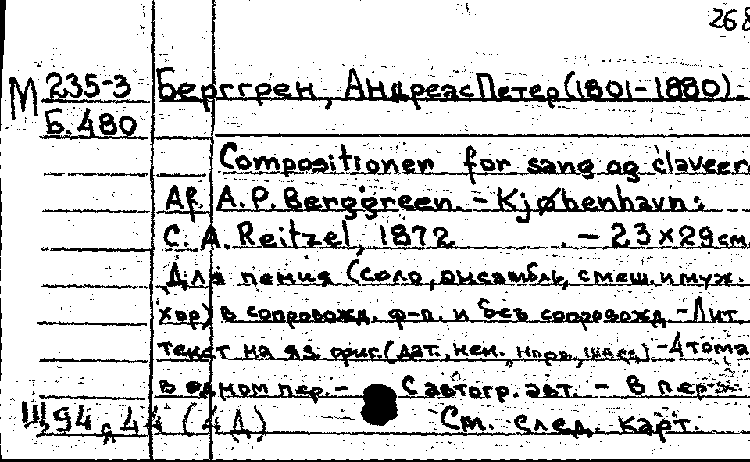 268
М 235-3 Берггрен, Андреас Петер (1801-1880).
Б. 480
Compositioner for sang og claveer
Af. A. P. Berggreen. - Kjøbenhavn:
C. A. Reitzel, 1872 . - 23 x 29 см.
Для пения (соло, ансамбль, смеш. и муж.
хор) в сопровожд. ф-п. и без сопровожд - Лит.
текст на яз. ориг. (дат., нем., норв., швед.) - 4 тома
в одном пер. - С автогр. авт. - В пер-
Ш 94 44 (4 Д) См. след. карт.